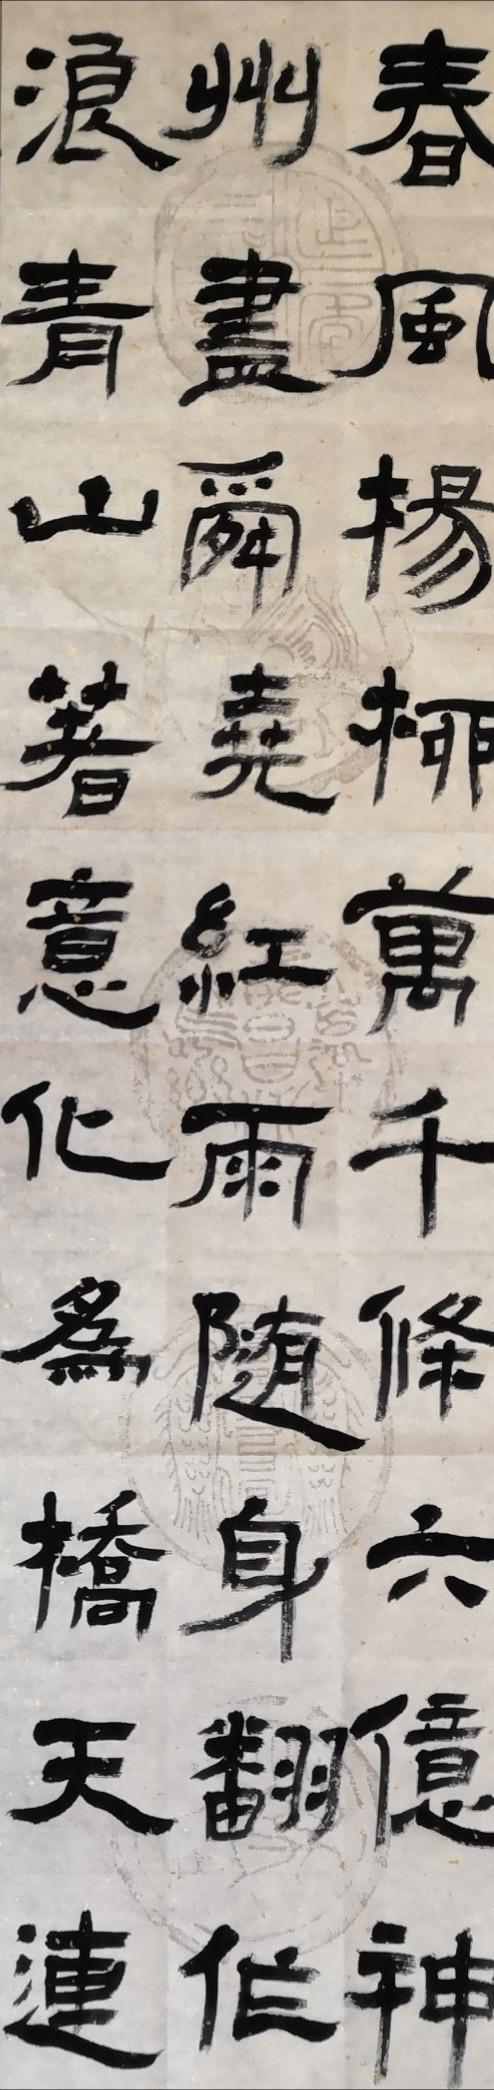 春風楊柳萬千條六億神
州盡舜堯紅雨随身翻作
浪青山著意化爲橋天連